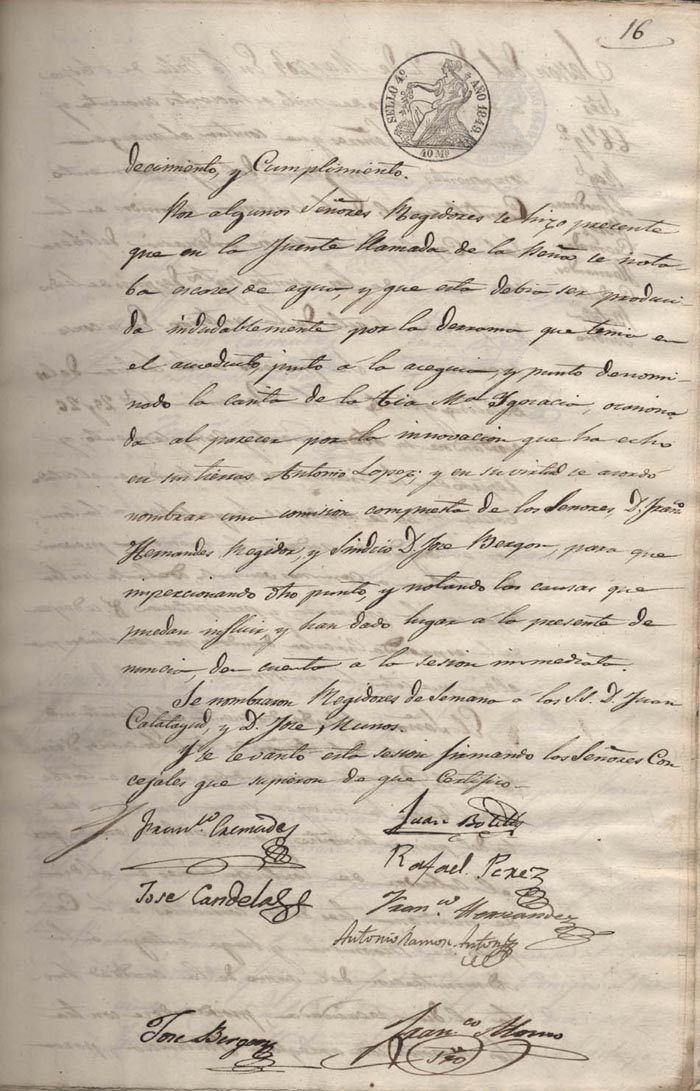 16
SELLO 4º AÑO 1849.
40 Ms
decimiento, y Cumplimiento.
Por algunos Señores Regidores se hizo presente
que en la fuente llamada de la Peña, se nota-
ba escases de agua, y que esta debia ser produci-
da indudablemente por la derrama que tenia en
el acueducto junto à la acequia, y punto denomi-
nado la canta de la tia Mª Ygnacia, ocasiona-
da al parecer por la innovacion que ha echo
en sus tierras Antonio Lopez; y en su virtud se acordó
nombrar una comision compuesta de los Señores, D. Franco
Hernandes Regidor, y Sindico D. Jose Bergon, para que
inspeccionando dho punto, y notando las causas que
puedan influir, y han dado lugar à la presente de
nuncia, den cuenta à la sesion immediata.
Se nombraron Regidores de Semana a los S.S. D. Juan
Calatayud, y D. Jose Munos.
Y se levanto esta sesion firmando los Señores Con-
cejales que supieron de que Certifico-
Franco Cremades
Juan Botella
Rafael Perez
Jose Candela
Franco Hernandez
Antonio Ramon Anton
Jose Bergon
Franco
Srio